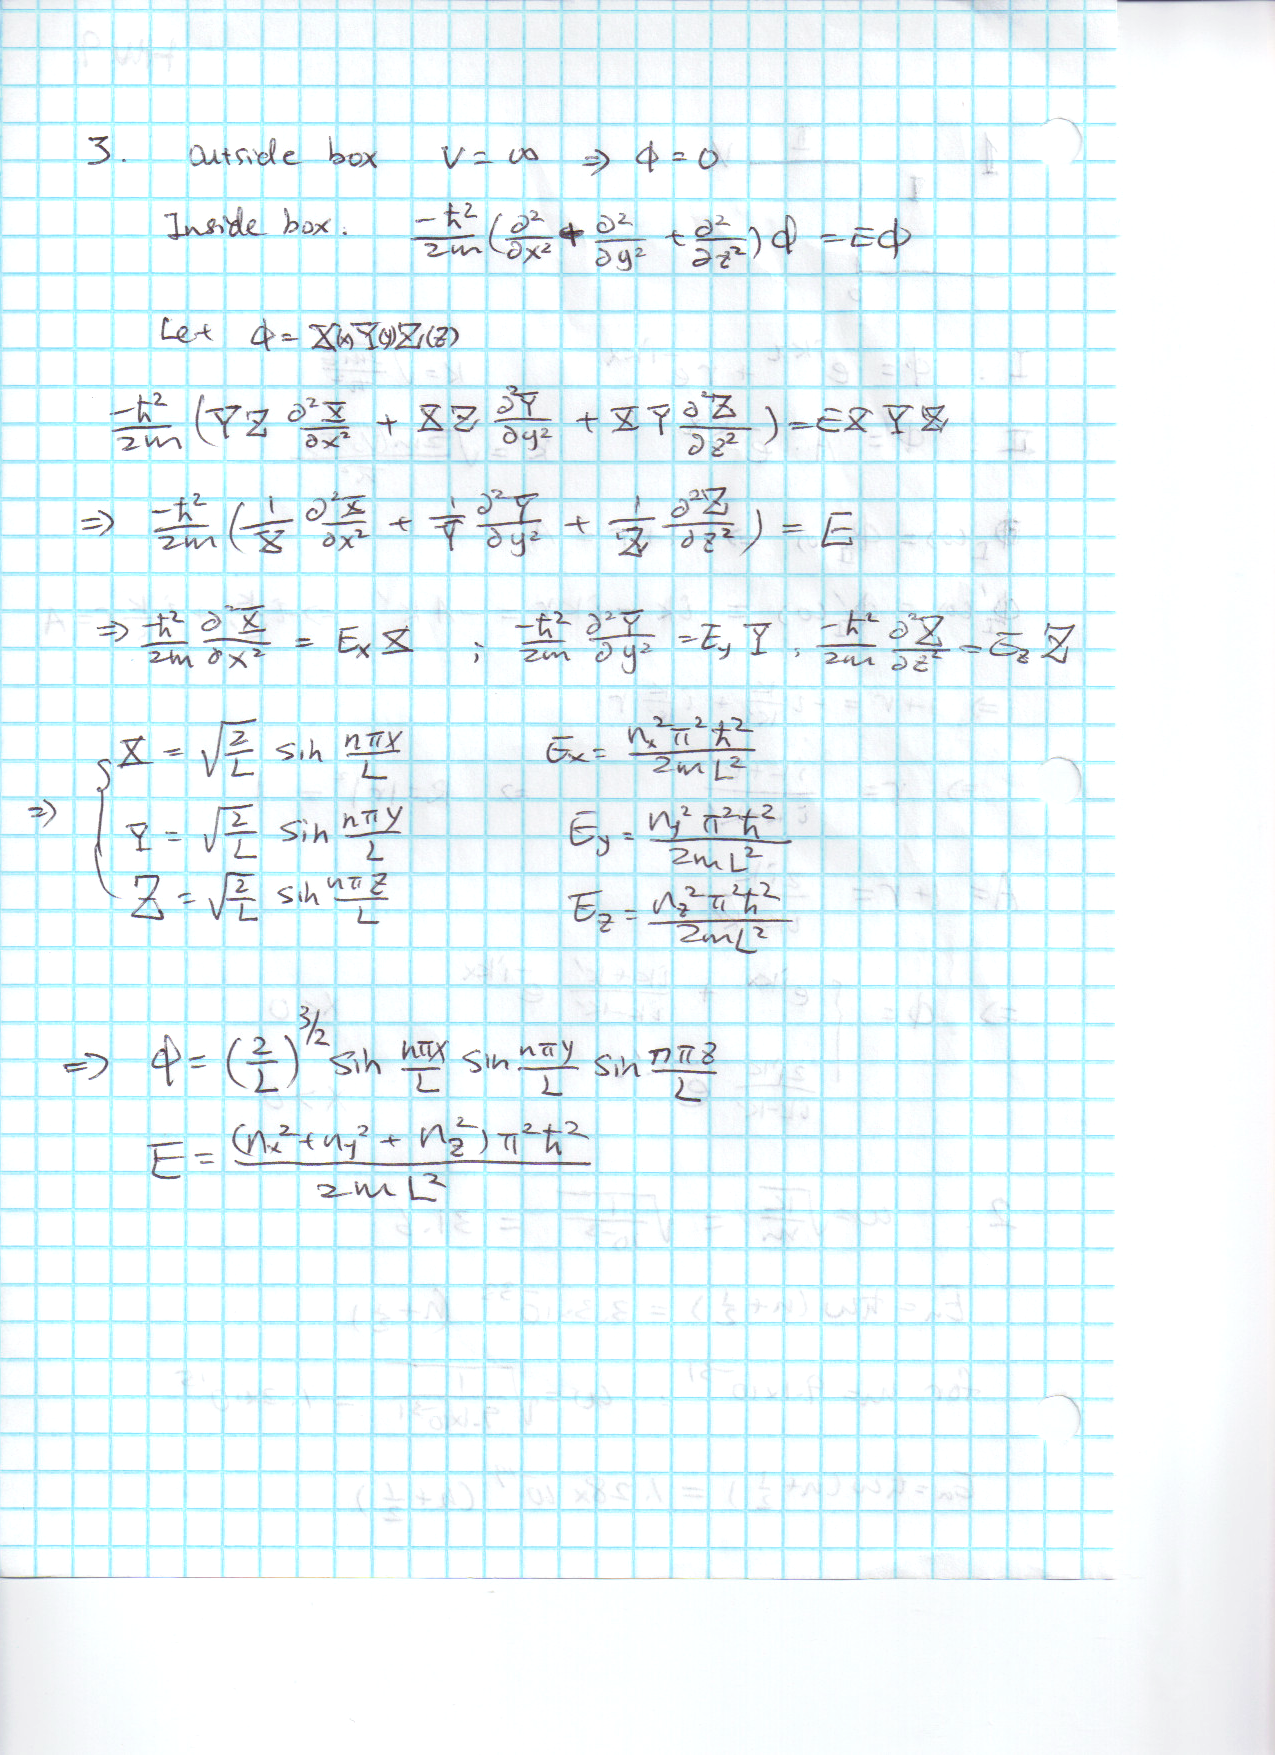 3. Outside box V = ∞ ⇒ ϕ = 0
Inside box. -ħ²/2m (∂²/∂x² + ∂²/∂y² + ∂²/∂z²) ϕ = Eϕ
Let ϕ = X(x)Y(y)Z(z)
-ħ²/2m (YZ ∂²X/∂x² + XZ ∂²Y/∂y² + XY ∂²Z/∂z²) = EXYZ
⇒ -ħ²/2m (1/X ∂²X/∂x² + 1/Y ∂²Y/∂y² + 1/Z ∂²Z/∂z²) = E
⇒ -ħ²/2m ∂²X/∂x² = E_x X ; -ħ²/2m ∂²Y/∂y² = E_y Y , -ħ²/2m ∂²Z/∂z² = E_z Z
X = √(2/L) sin nπx/L E_x = n_x²π²ħ²/2mL²
⇒ { Y = √(2/L) sin nπy/L E_y = n_y²π²ħ²/2mL²
Z = √(2/L) sin nπz/L E_z = n_z²π²ħ²/2mL²
⇒ ϕ = (2/L)^3/2 sin nπx/L sin nπy/L sin nπz/L
E = (n_x² + n_y² + n_z²)π²ħ²/2mL²